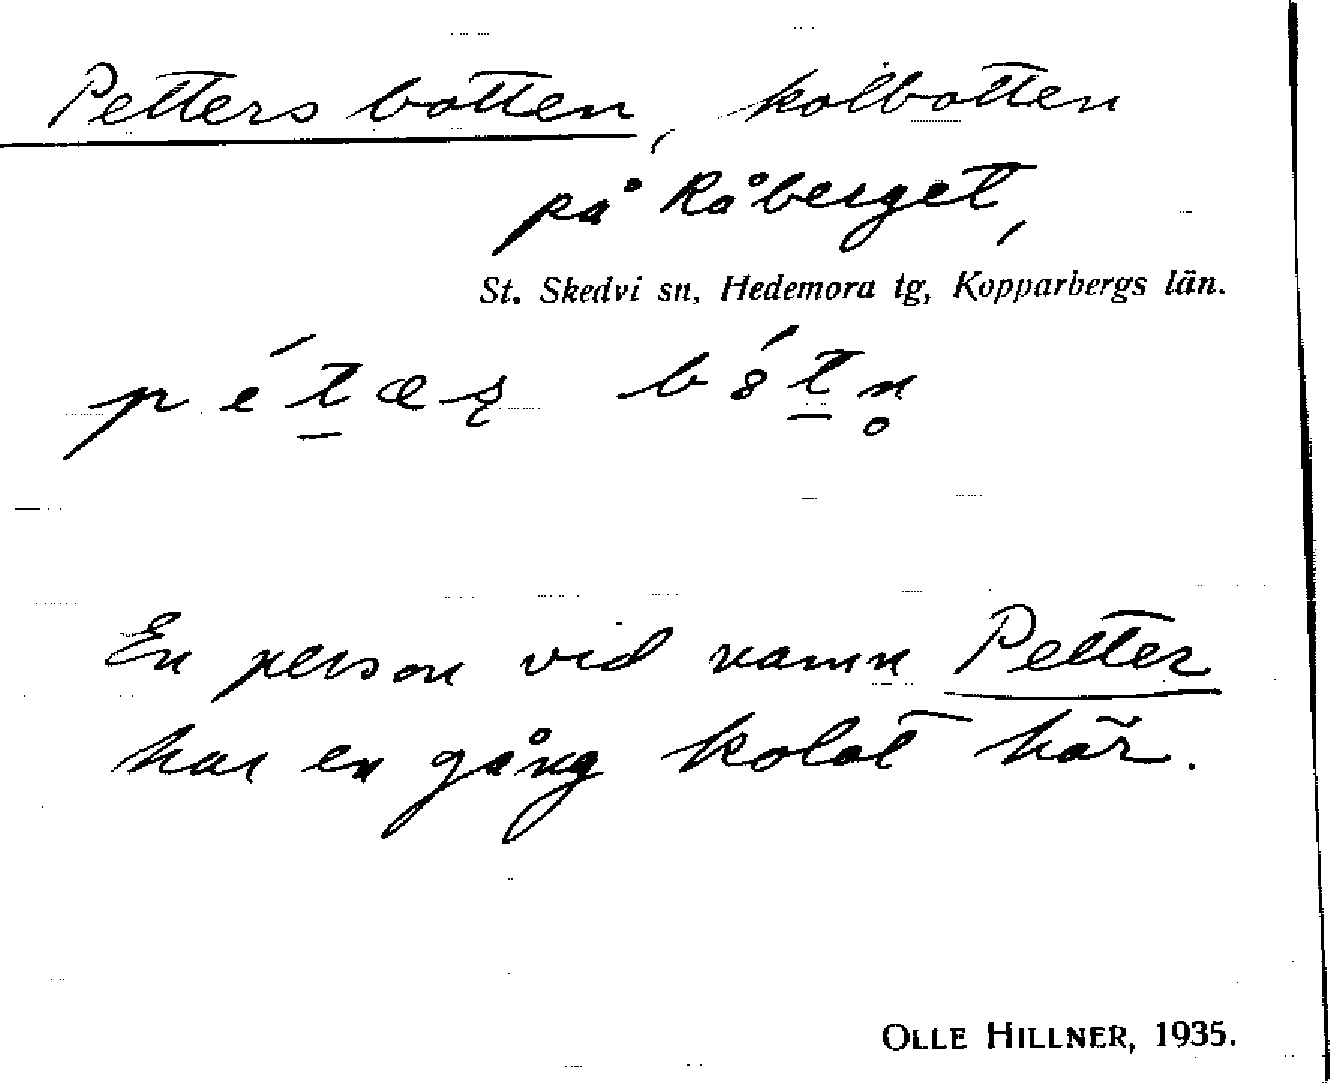 Petters botten, kolbotten
på Råberget,
St. Skedvi sn, Hedemora tg, Kopparbergs län.
En person vid namn Petter
har en gång kolat här.
OLLE HILLNER, 1935.